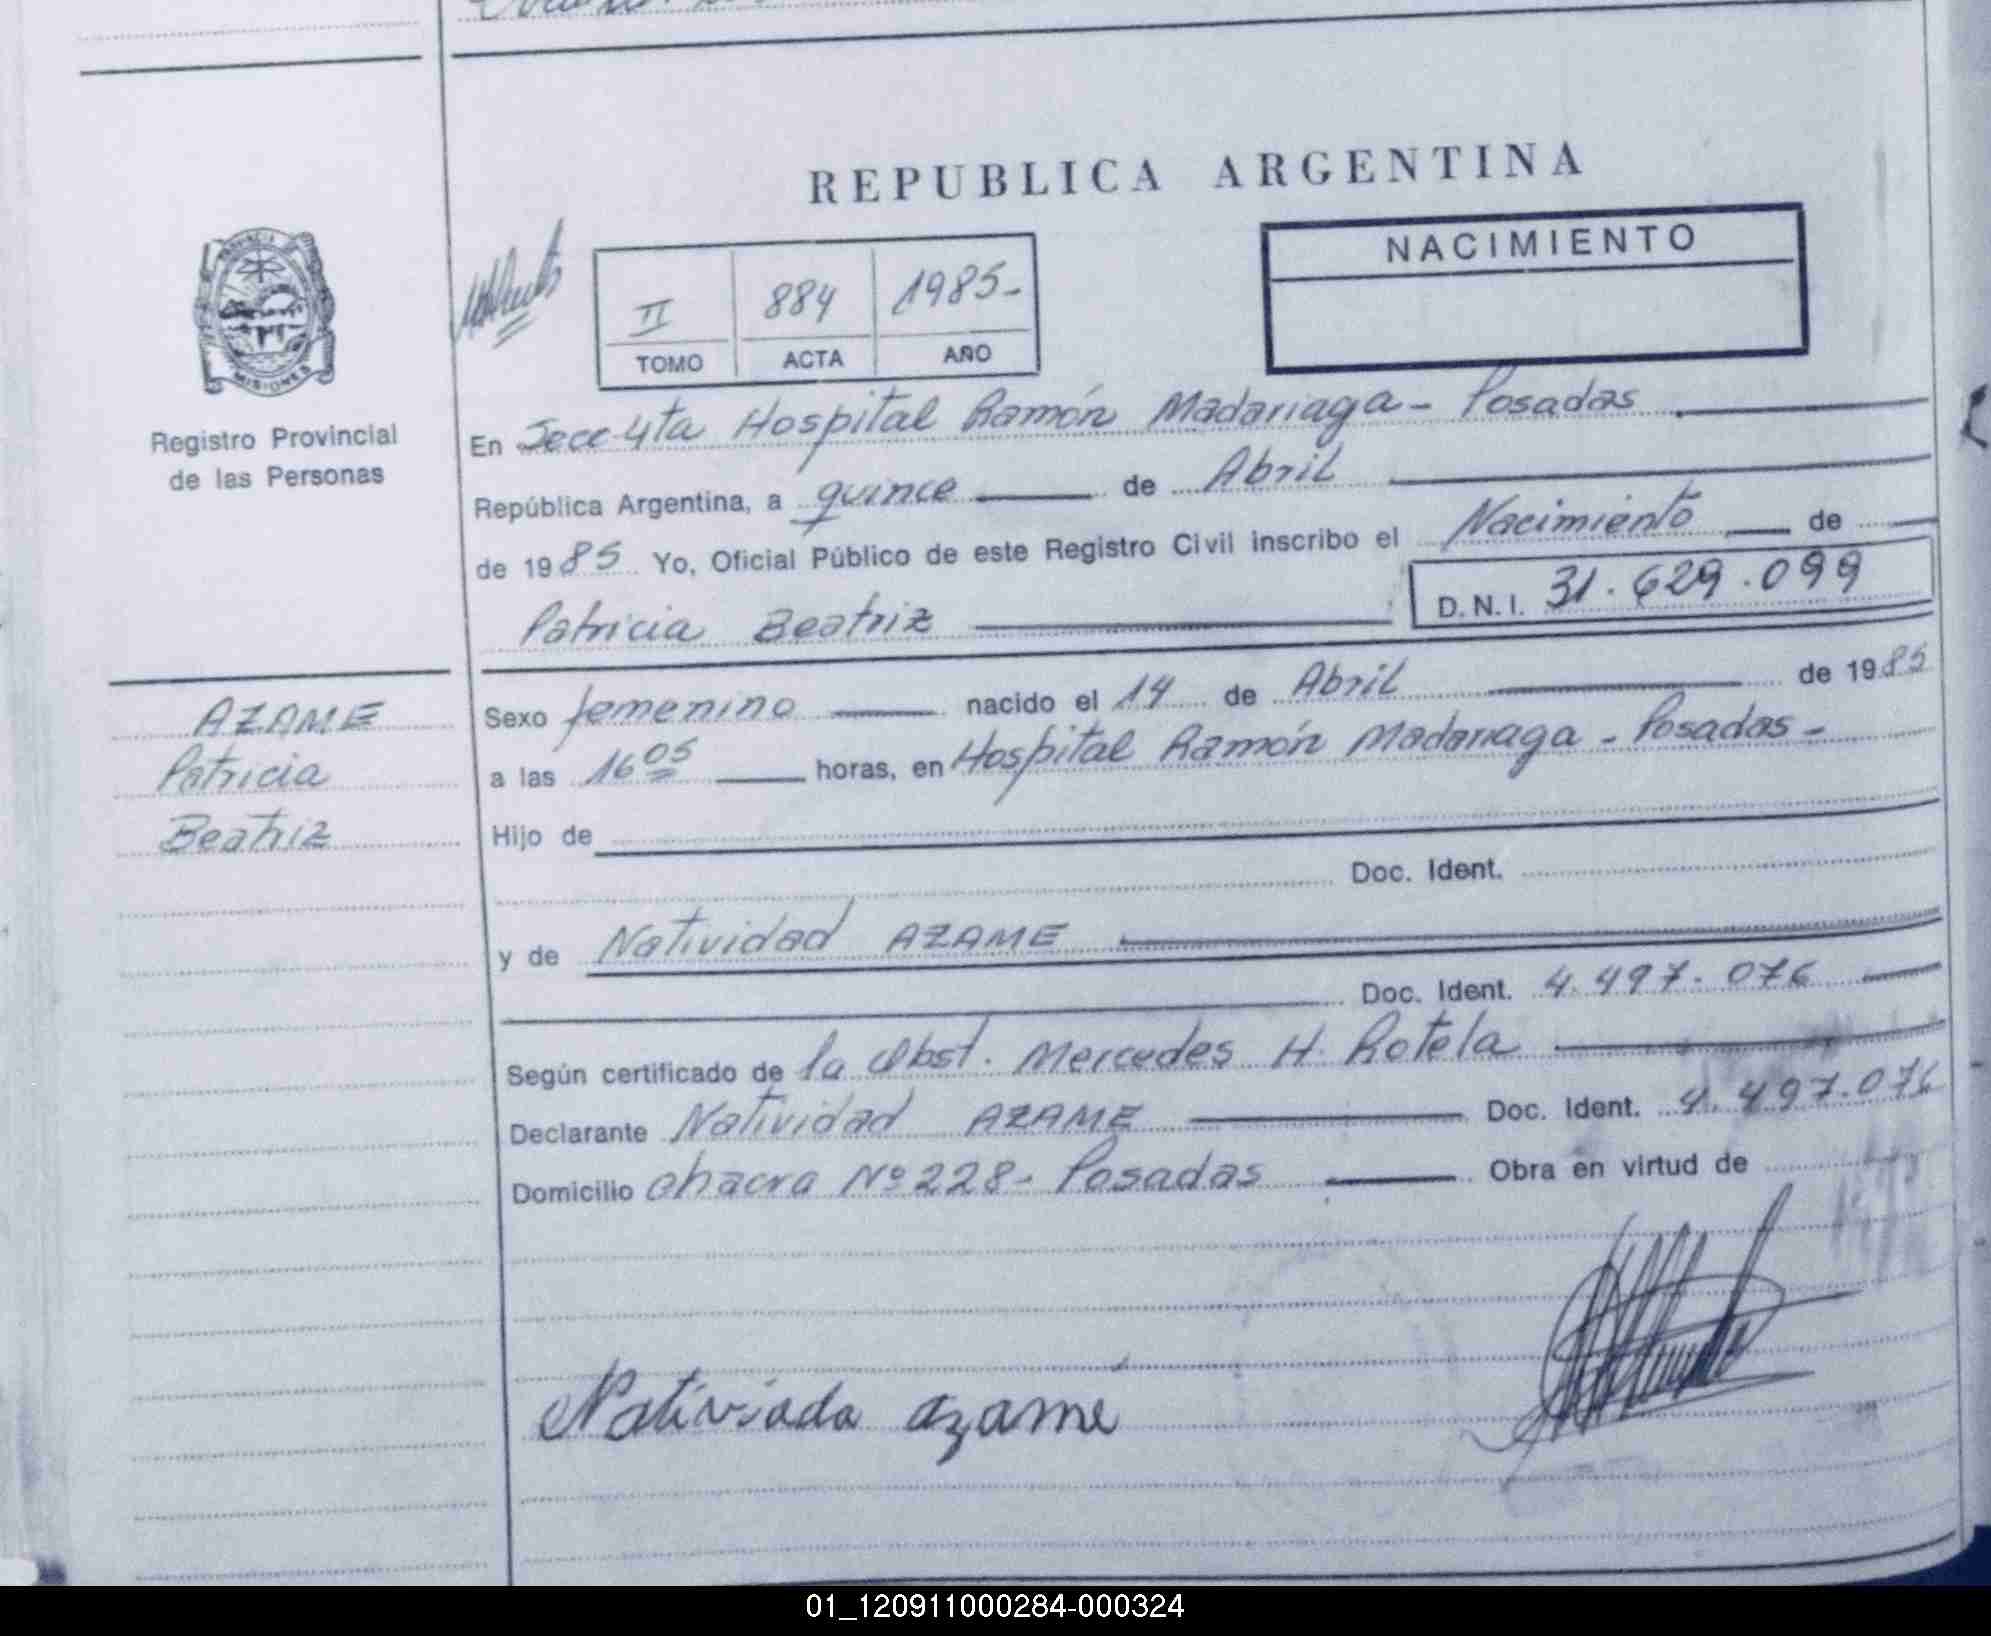 REPUBLICA ARGENTINA
NACIMIENTO
II 884 1985-
TOMO ACTA AÑO
PROVINCIA
MISIONES
Registro Provincial
de las Personas
En Secc 4ta Hospital Ramón Madariaga - Posadas
República Argentina, a quince de Abril
de 1985 Yo, Oficial Público de este Registro Civil inscribo el Nacimiento de
Patricia Beatriz D.N.I. 31.629.099
AZAME
Patricia
Beatriz
Sexo femenino nacido el 14 de Abril de 1985
a las 16 05 horas, en Hospital Ramón Madariaga - Posadas -
Hijo de
Doc. Ident.
y de Natividad AZAME
Doc. Ident. 4.497.076
Según certificado de la Obst. Mercedes H. Rotela
Declarante Natividad AZAME Doc. Ident. 4.497.076
Domicilio chacra Nº 228- Posadas Obra en virtud de
Nativiada azamé
01_120911000284-000324